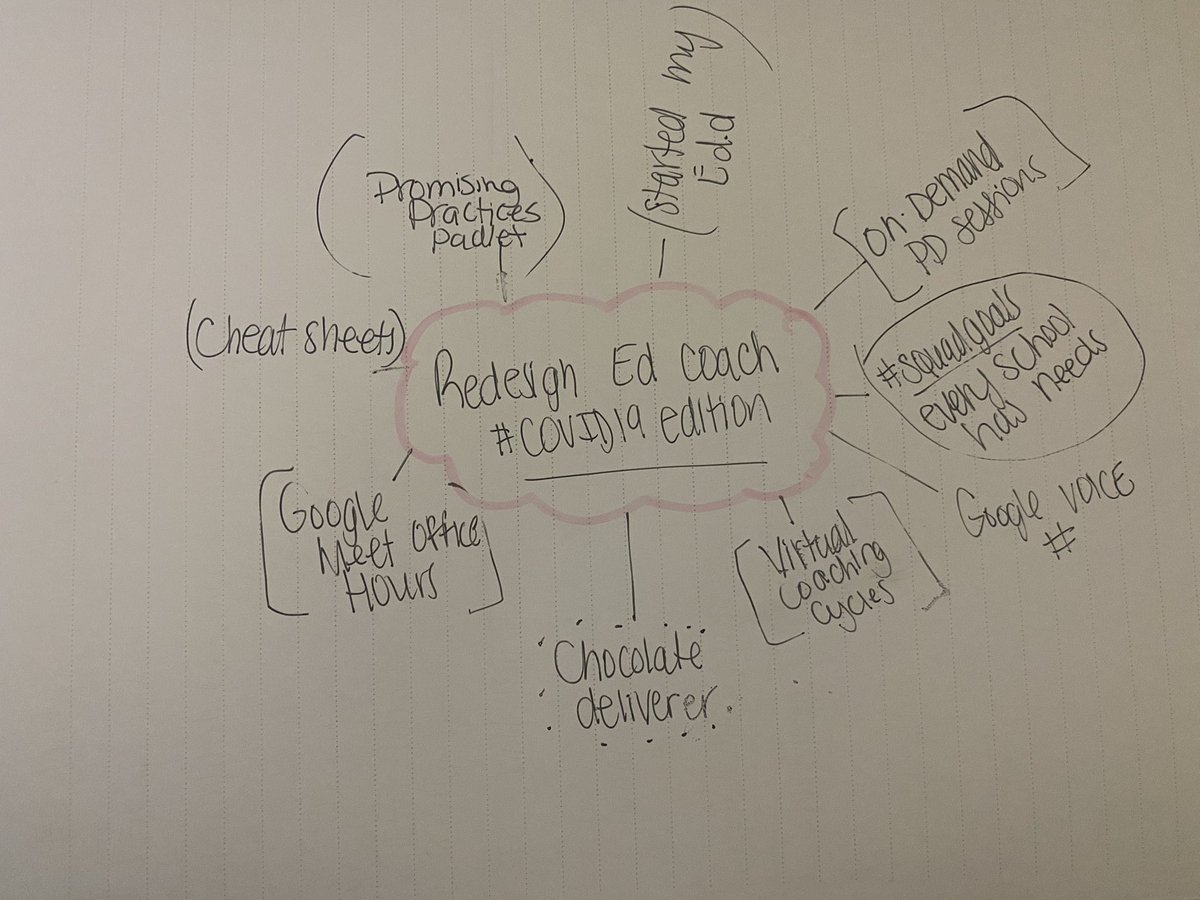 (started my
Ed.d
Promising
Practices
padlet
on-Demand
PD sessions
(Cheat sheets)
Redesign Ed coach
#COVID19 edition
#squadgoals
every school
has needs
Google voice
#
Google
Meet office
Hours
Virtual
coaching
cycles
Chocolate
deliverer